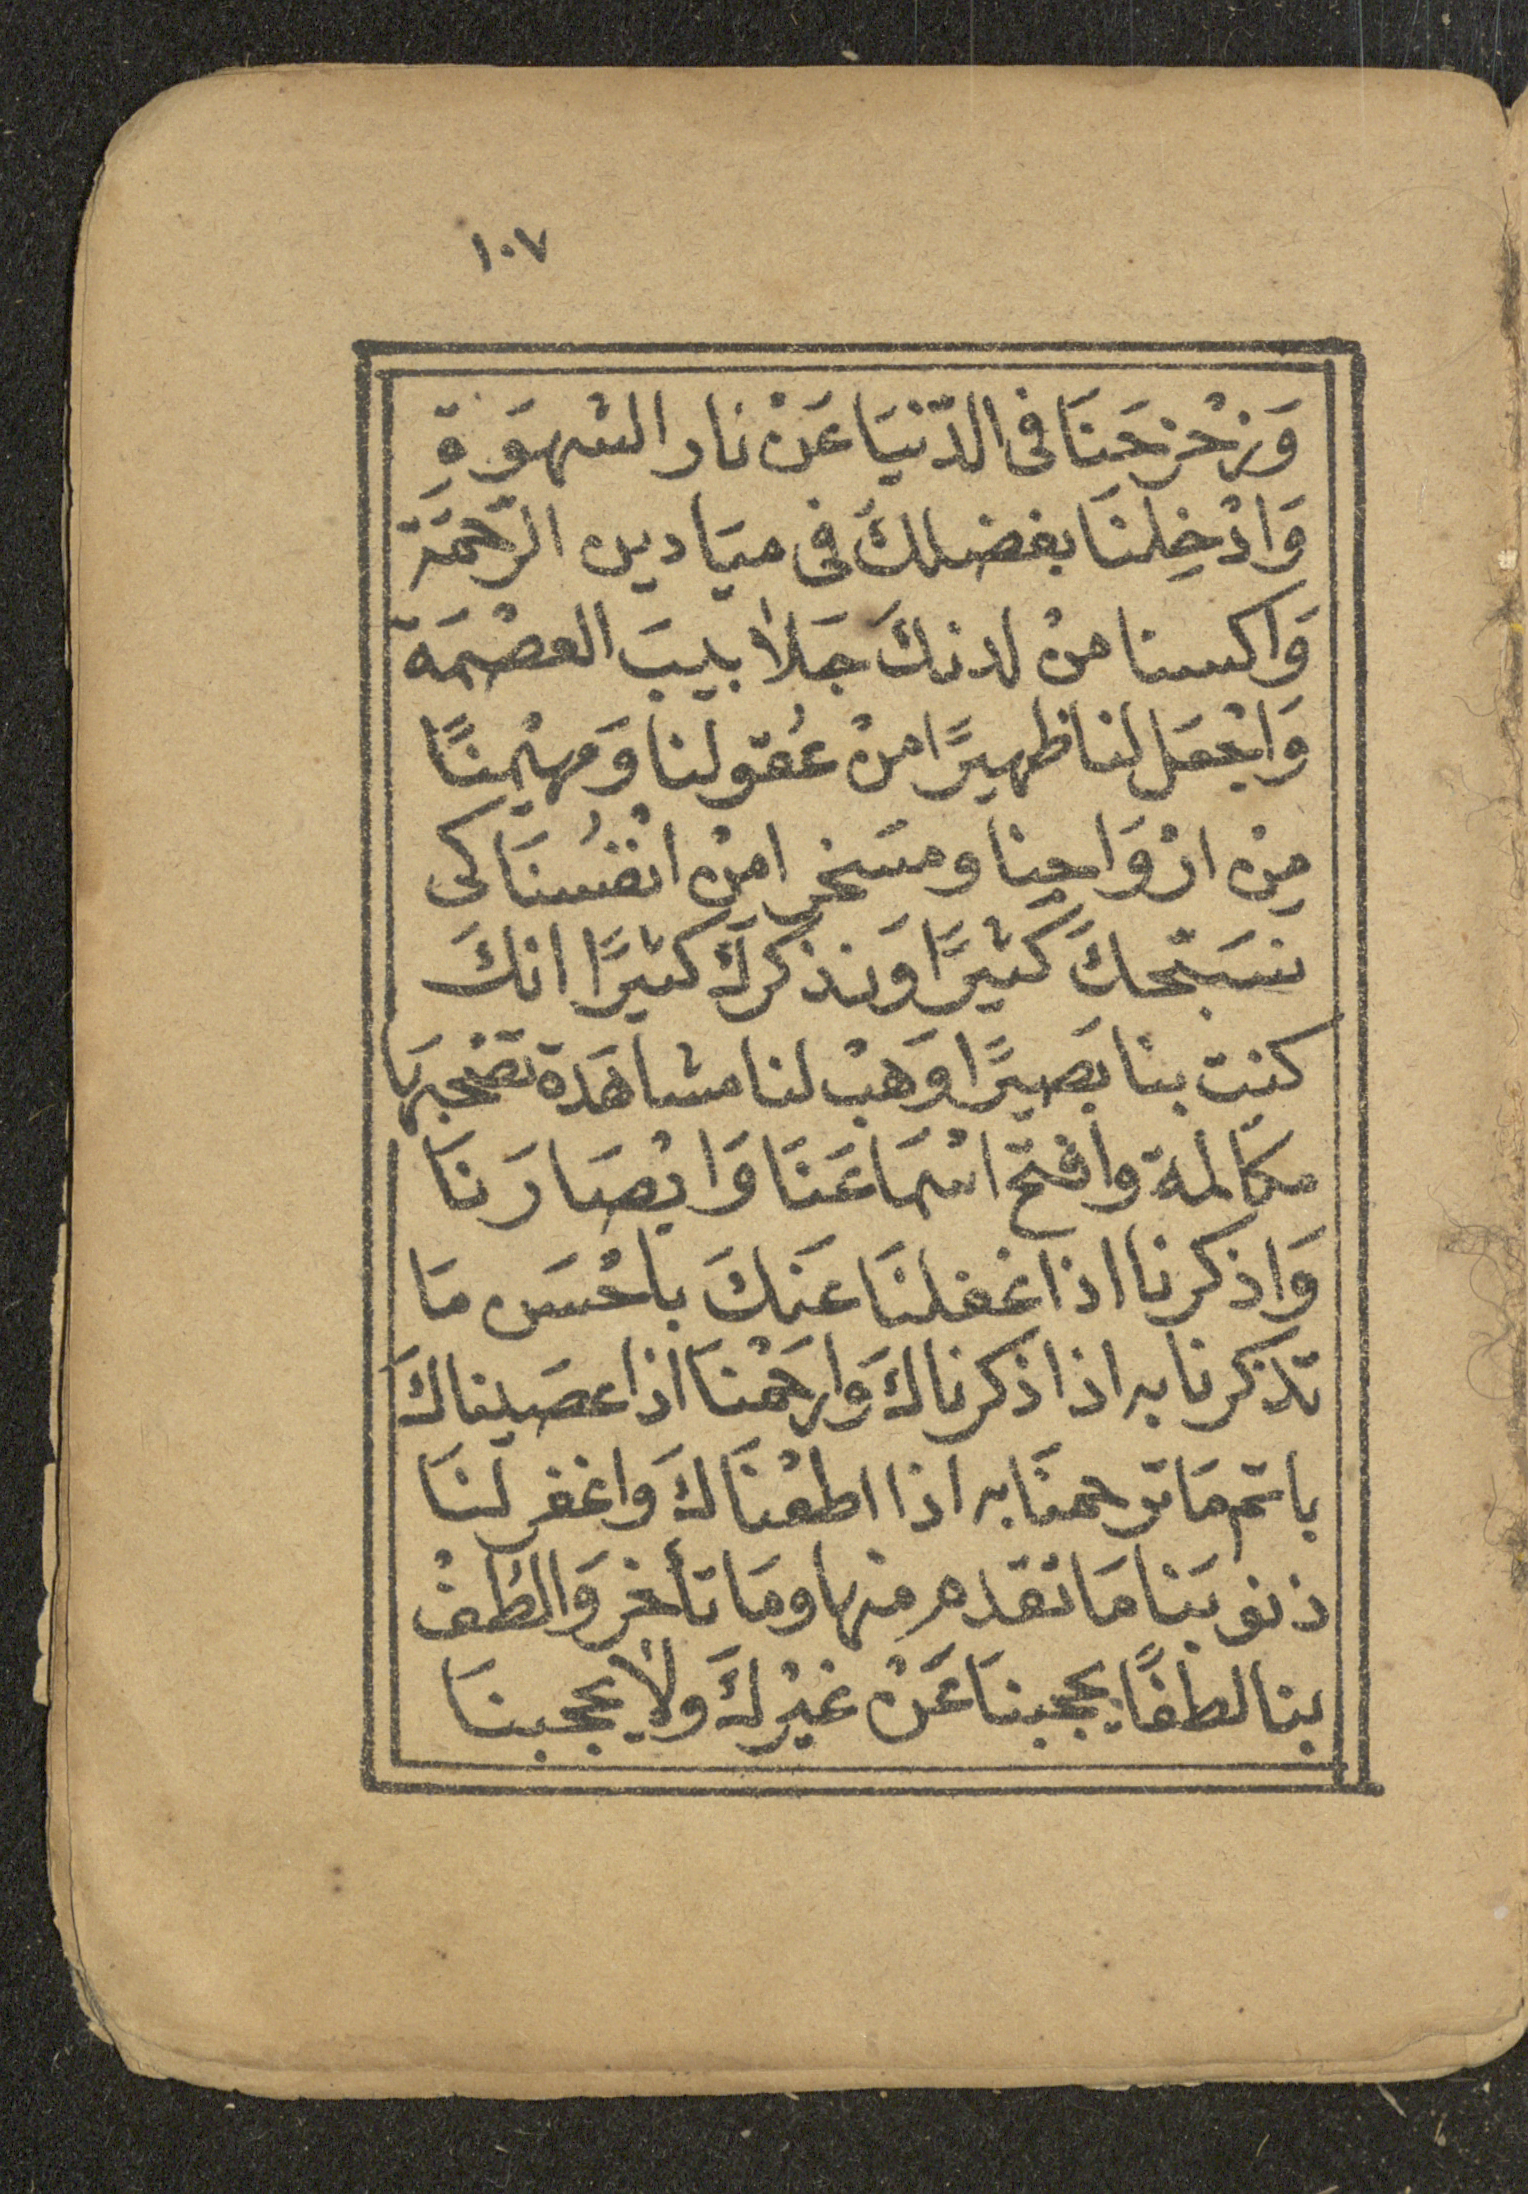 ١٠٧
وَزحْزحَنَا فى الدّنيَا عَنْ نار الشهوَةِ
وَادْخِلنَا بفضلكَ فى ميَادين الرّحمَة
وَاكسنا منْ لدنكَ جَلابيبَ العصْمَة
وَاجْعَل لنا ظهيرًا منْ عُقولنا وَمهيْمنًا
مِنْ ارْوَاحِنا ومسَخرا منْ انفُسنَا كى
نسَبّحكَ كثيرًا وَنذكركَ كثيرًا انكَ
كنت بنا بَصيرًا وَهَبْ لنا مشاهَدة تصْحبهَا
مكالمة وافتح اسْمَاعَنَا وَابْصَارَنَا
وَاذكرنا اذا غفلنَا عَنكَ باحْسَن مَا
تذكرنا به اذا ذكرناكَ وَارحَمْنَا اذا عصَيناكَ
باتم مَا ترحمنَا به اذا اطعْنَاكَ وَاغفر لنَا
ذنوبَنا مَا تقدم مِنها ومَا تأخر وَالطُفْ
بنا لطفًا يحجبنَا عَنْ غيْركَ ولا يحجبنَا